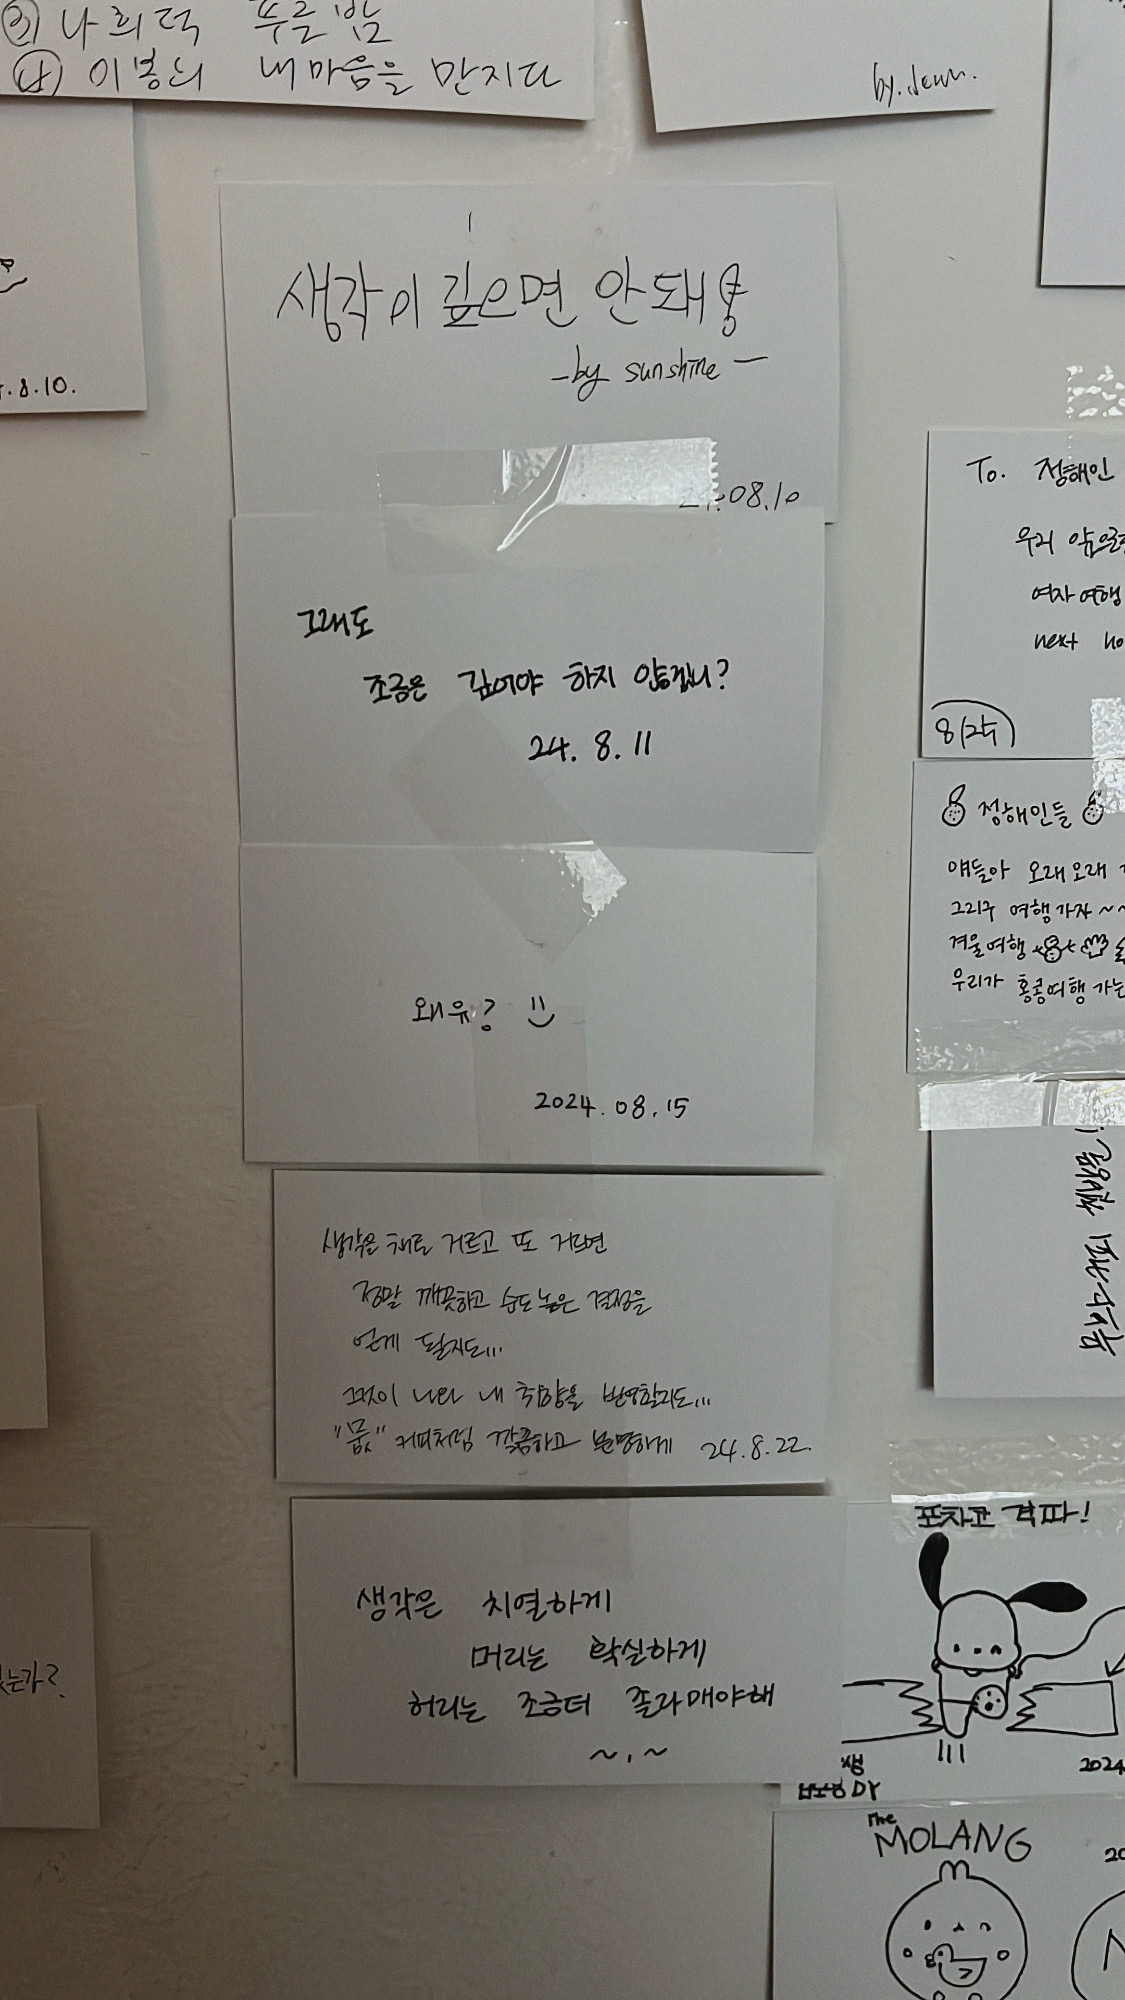 나희덕 푸른밤
이봉늬 내마음을 만지다
by.
8.10.
생각이 깊으면 안돼용
-by sunshine-
24.08.10
그래도
조금은 깊어야 하지 않겠니?
24. 8. 11
왜유?
2024.08.15
생각을 채로 거르고 또 거르면
정말 깨끗하고 순도높은 결정을
얻게 될지도...
그것이 나와 내 취향을 반영할지도...
"뭆" 커피처럼 깔끔하고 분명하게 24.8.22.
생각은 치열하게
머리는 확실하게
허리는 조금더 졸라매야해
~.~
To. 정해인
우리
여자여행
next
정해인들
얘들아 오래오래
그리구 여행가자~~
겨울여행
우리가 홍콩여행가는
포차코 격파!
2024
DY
The
MOLANG
20
는가?